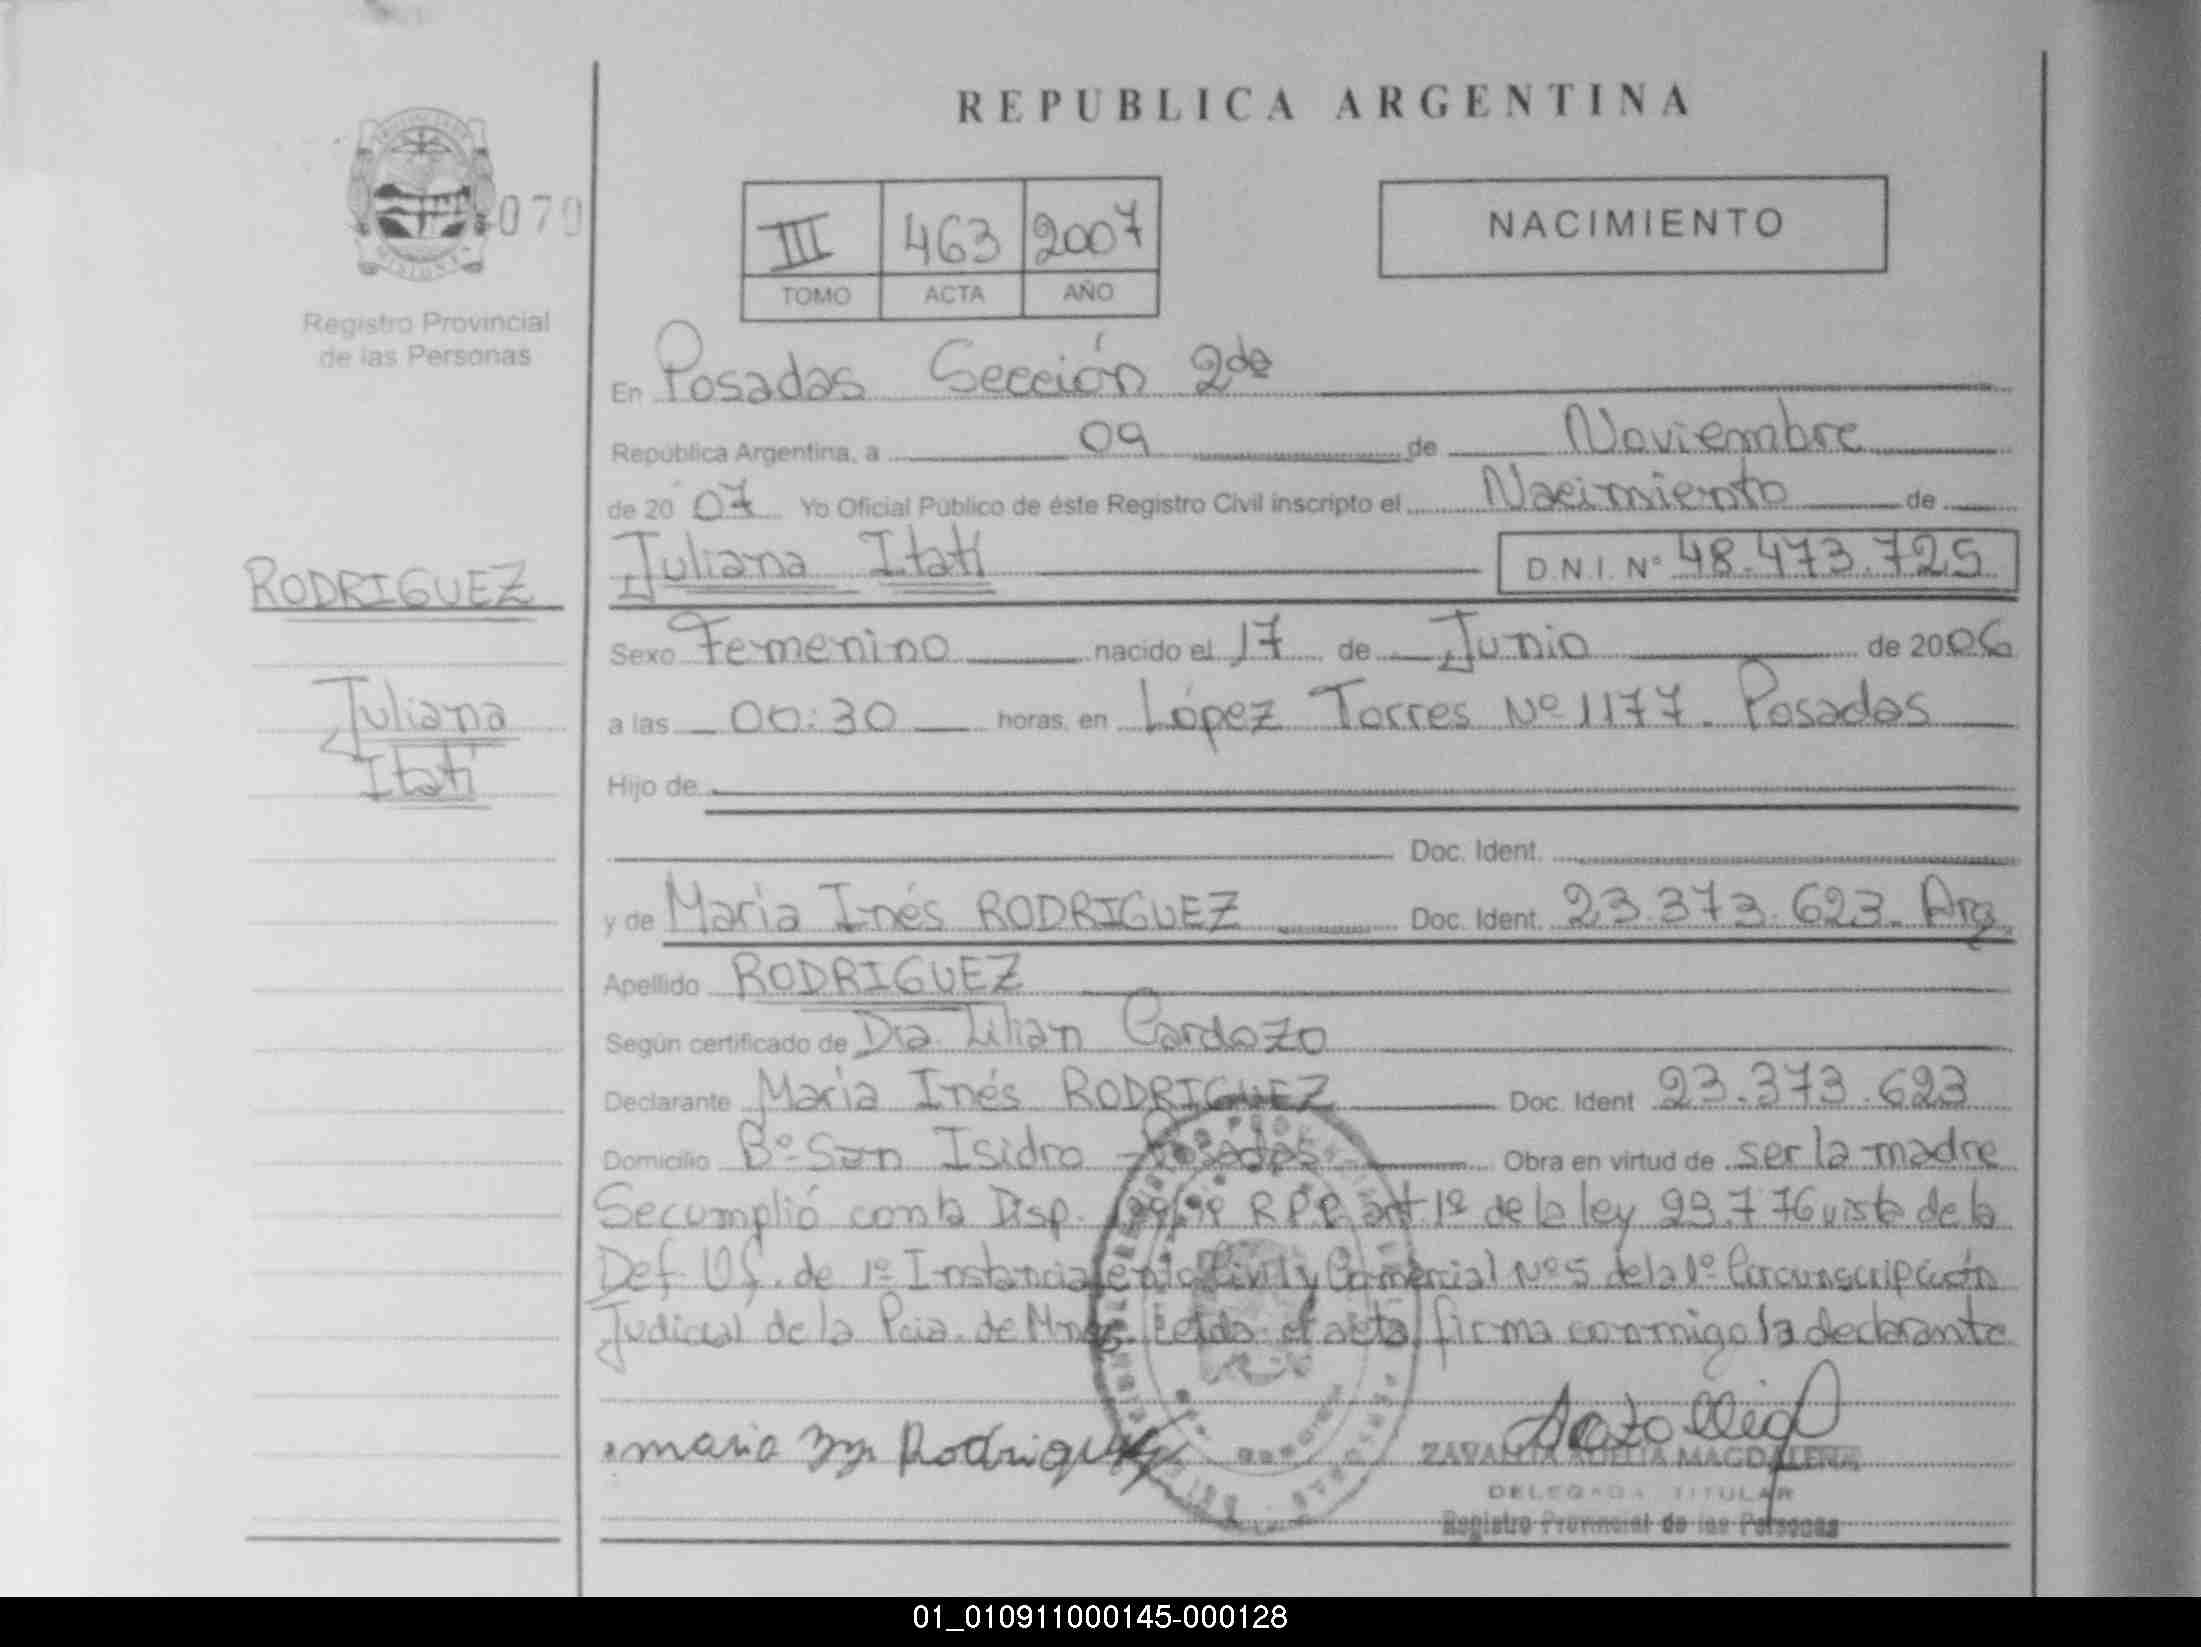 REPUBLICA ARGENTINA
070
III 463 2007
TOMO ACTA AÑO
NACIMIENTO
MISIONES
Registro Provincial
de las Personas
En Posadas Sección 2da
República Argentina, a 09 de Noviembre
de 20 07 Yo Oficial Público de éste Registro Civil inscripto el Nacimiento de
Juliana Itatí D.N.I. Nº 48.473.725
RODRIGUEZ
Juliana
Itatí
Sexo Femenino nacido el 17 de Junio de 2006
a las 00:30 horas, en López Torres Nº 1177. Posadas
Hijo de
Doc. Ident.
y de Maria Inés RODRIGUEZ Doc. Ident. 23.373.623. Arg.
Apellido RODRIGUEZ
Según certificado de Dra. Lilian Cardozo
Declarante Maria Inés RODRIGUEZ Doc. Ident 23.373.623
Domicilio Bº San Isidro - Posadas Obra en virtud de ser la madre
Se cumplió con la Disp. RPP art 1º de la ley 23.776 vista de la
Def. Of. de 1º Instancia en lo Civil y Comercial Nº 5 de la 1º Circunscripción
Judicial de la Pcia. de Mnes. Leída el acta, firma conmigo la declarante
maria Rodriguez
MAGDALENA
DELEGADA TITULAR
Registro Provincial de las Personas
01_010911000145-000128